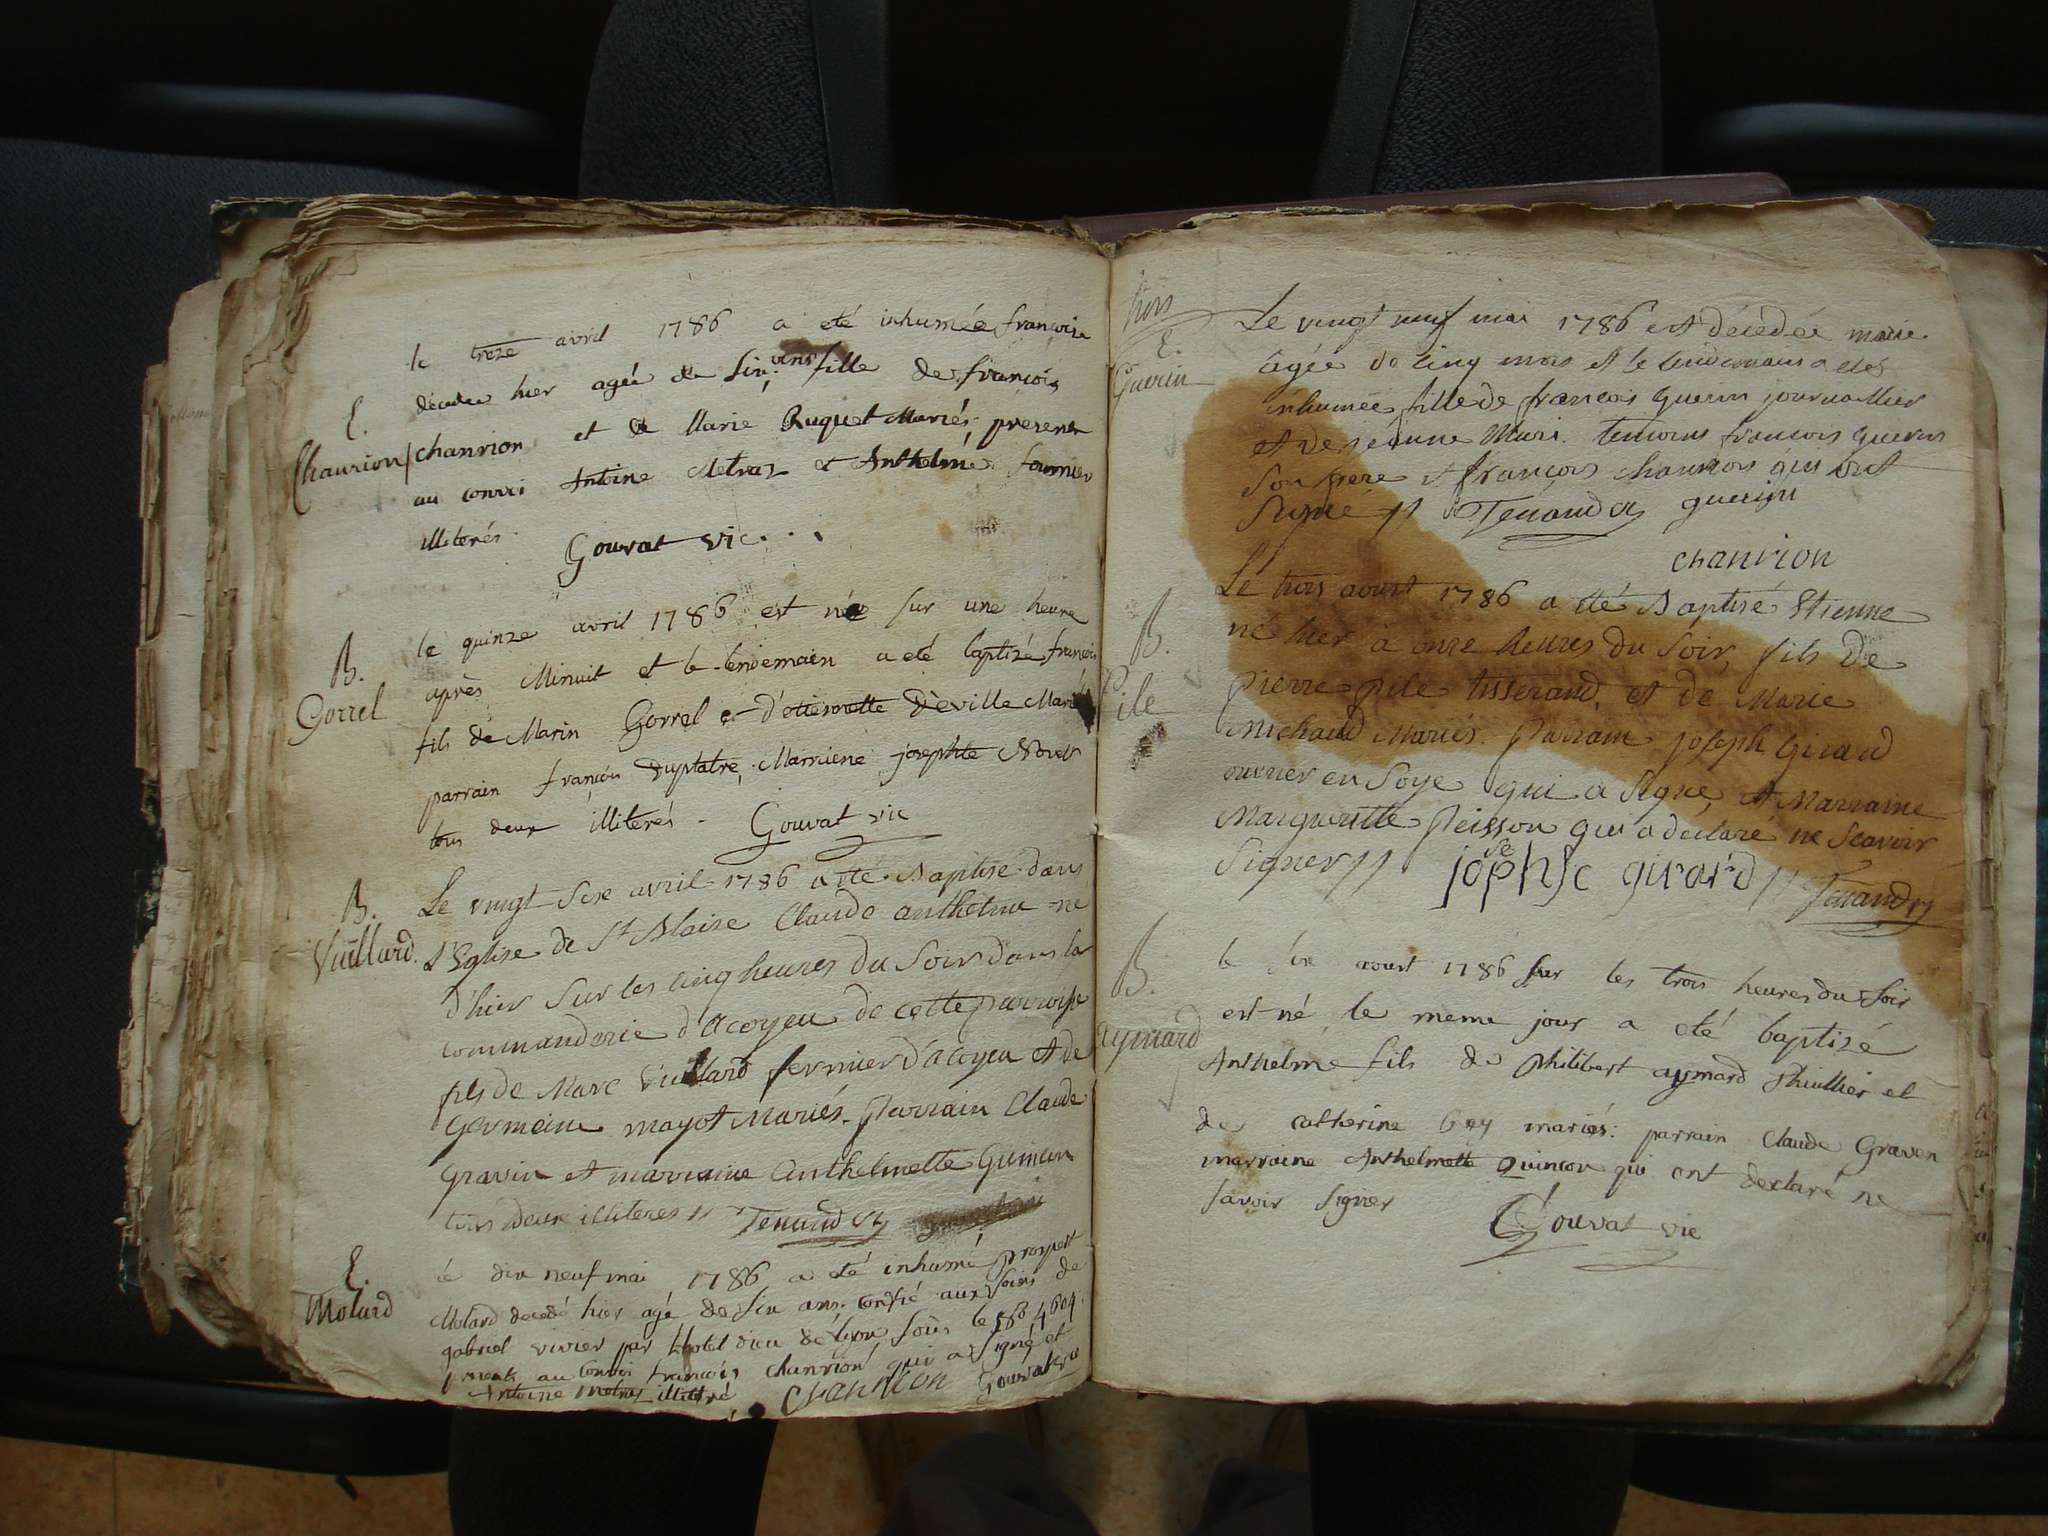 le treze avril 1786 a eté inhumée françoise
décédée hier agée de six ans fille de françois
E.
Chanrion chanrion et de Marie Ruquet Mariés, presens
au convoi Antoine Metraz et Anthelme fournier
illiterés. Gouvat vic...
B.
Gorrel
le quinze avril 1786 est née sur une heure
après Minuit et le lendemain a eté baptizé françois
fils de Marin Gorrel et d'etiennette Déville Mariés
parrain françois Duplatre, Marriene josephte Novel
tous deux illiterés. Gouvat vic
B.
Vuillard.
Le vingt sixe avril 1786 a été Baptisé dans
L'Eglise de St Blaise Claude anthelme né
d'hier sur les cinq heures du Soir dans la
commanderie d'acoyeu de cette parroisse
fils de Marc Vuillard fermier d'acoyeu et de
Germaine mayot Mariés. Parrain Claude
Gravin et marraine Anthelmette Guinium
tous deux illiteres // Tenaud
E.
Molard
le dix neuf mai 1786 a été inhumé prospert
Molard decedé hier agé de six ans, confié aux soins de
gabriel vivier par l'hotel dieu de lyon, sous le 4604.
presents au convoi françois chanrion qui a signé et
Antoine metraz illittré chanrion Gouvat vic
trois
E.
Guerin
Le vingt neuf mai 1786 est décédée marie
agée de cinq mois et le lendemain a eté
inhumée fille de francois Guerin journallier
et de jeanne Muri. temoins francois Guerin
son frere et françois chanrion qui ont
Signé // Tenaud guerin
chanrion
B.
Pile
Lé trois aoust 1786 a été Baptisé Etienne
né hier à onze heures du Soir, fils De
pierre pile tisserand, et de Marie
Michaud Mariés. Parrain joseph Girard
ouvrier en Soye qui a Signé, et Marraine
Marguerite Peisson qui a declaré ne Scavoir
Signer // josephse girard // Tenaud
B.
aymard
le six aoust 1786 sur les trois heures du soir
est né le meme jour a eté baptizé
Anthelme fils de Philibert aymard thuillier et
de catherine Gey mariés: parrain Claude Graven
marraine Anthelmette Quincon qui ont declaré ne
savoir signer Gouvat vic